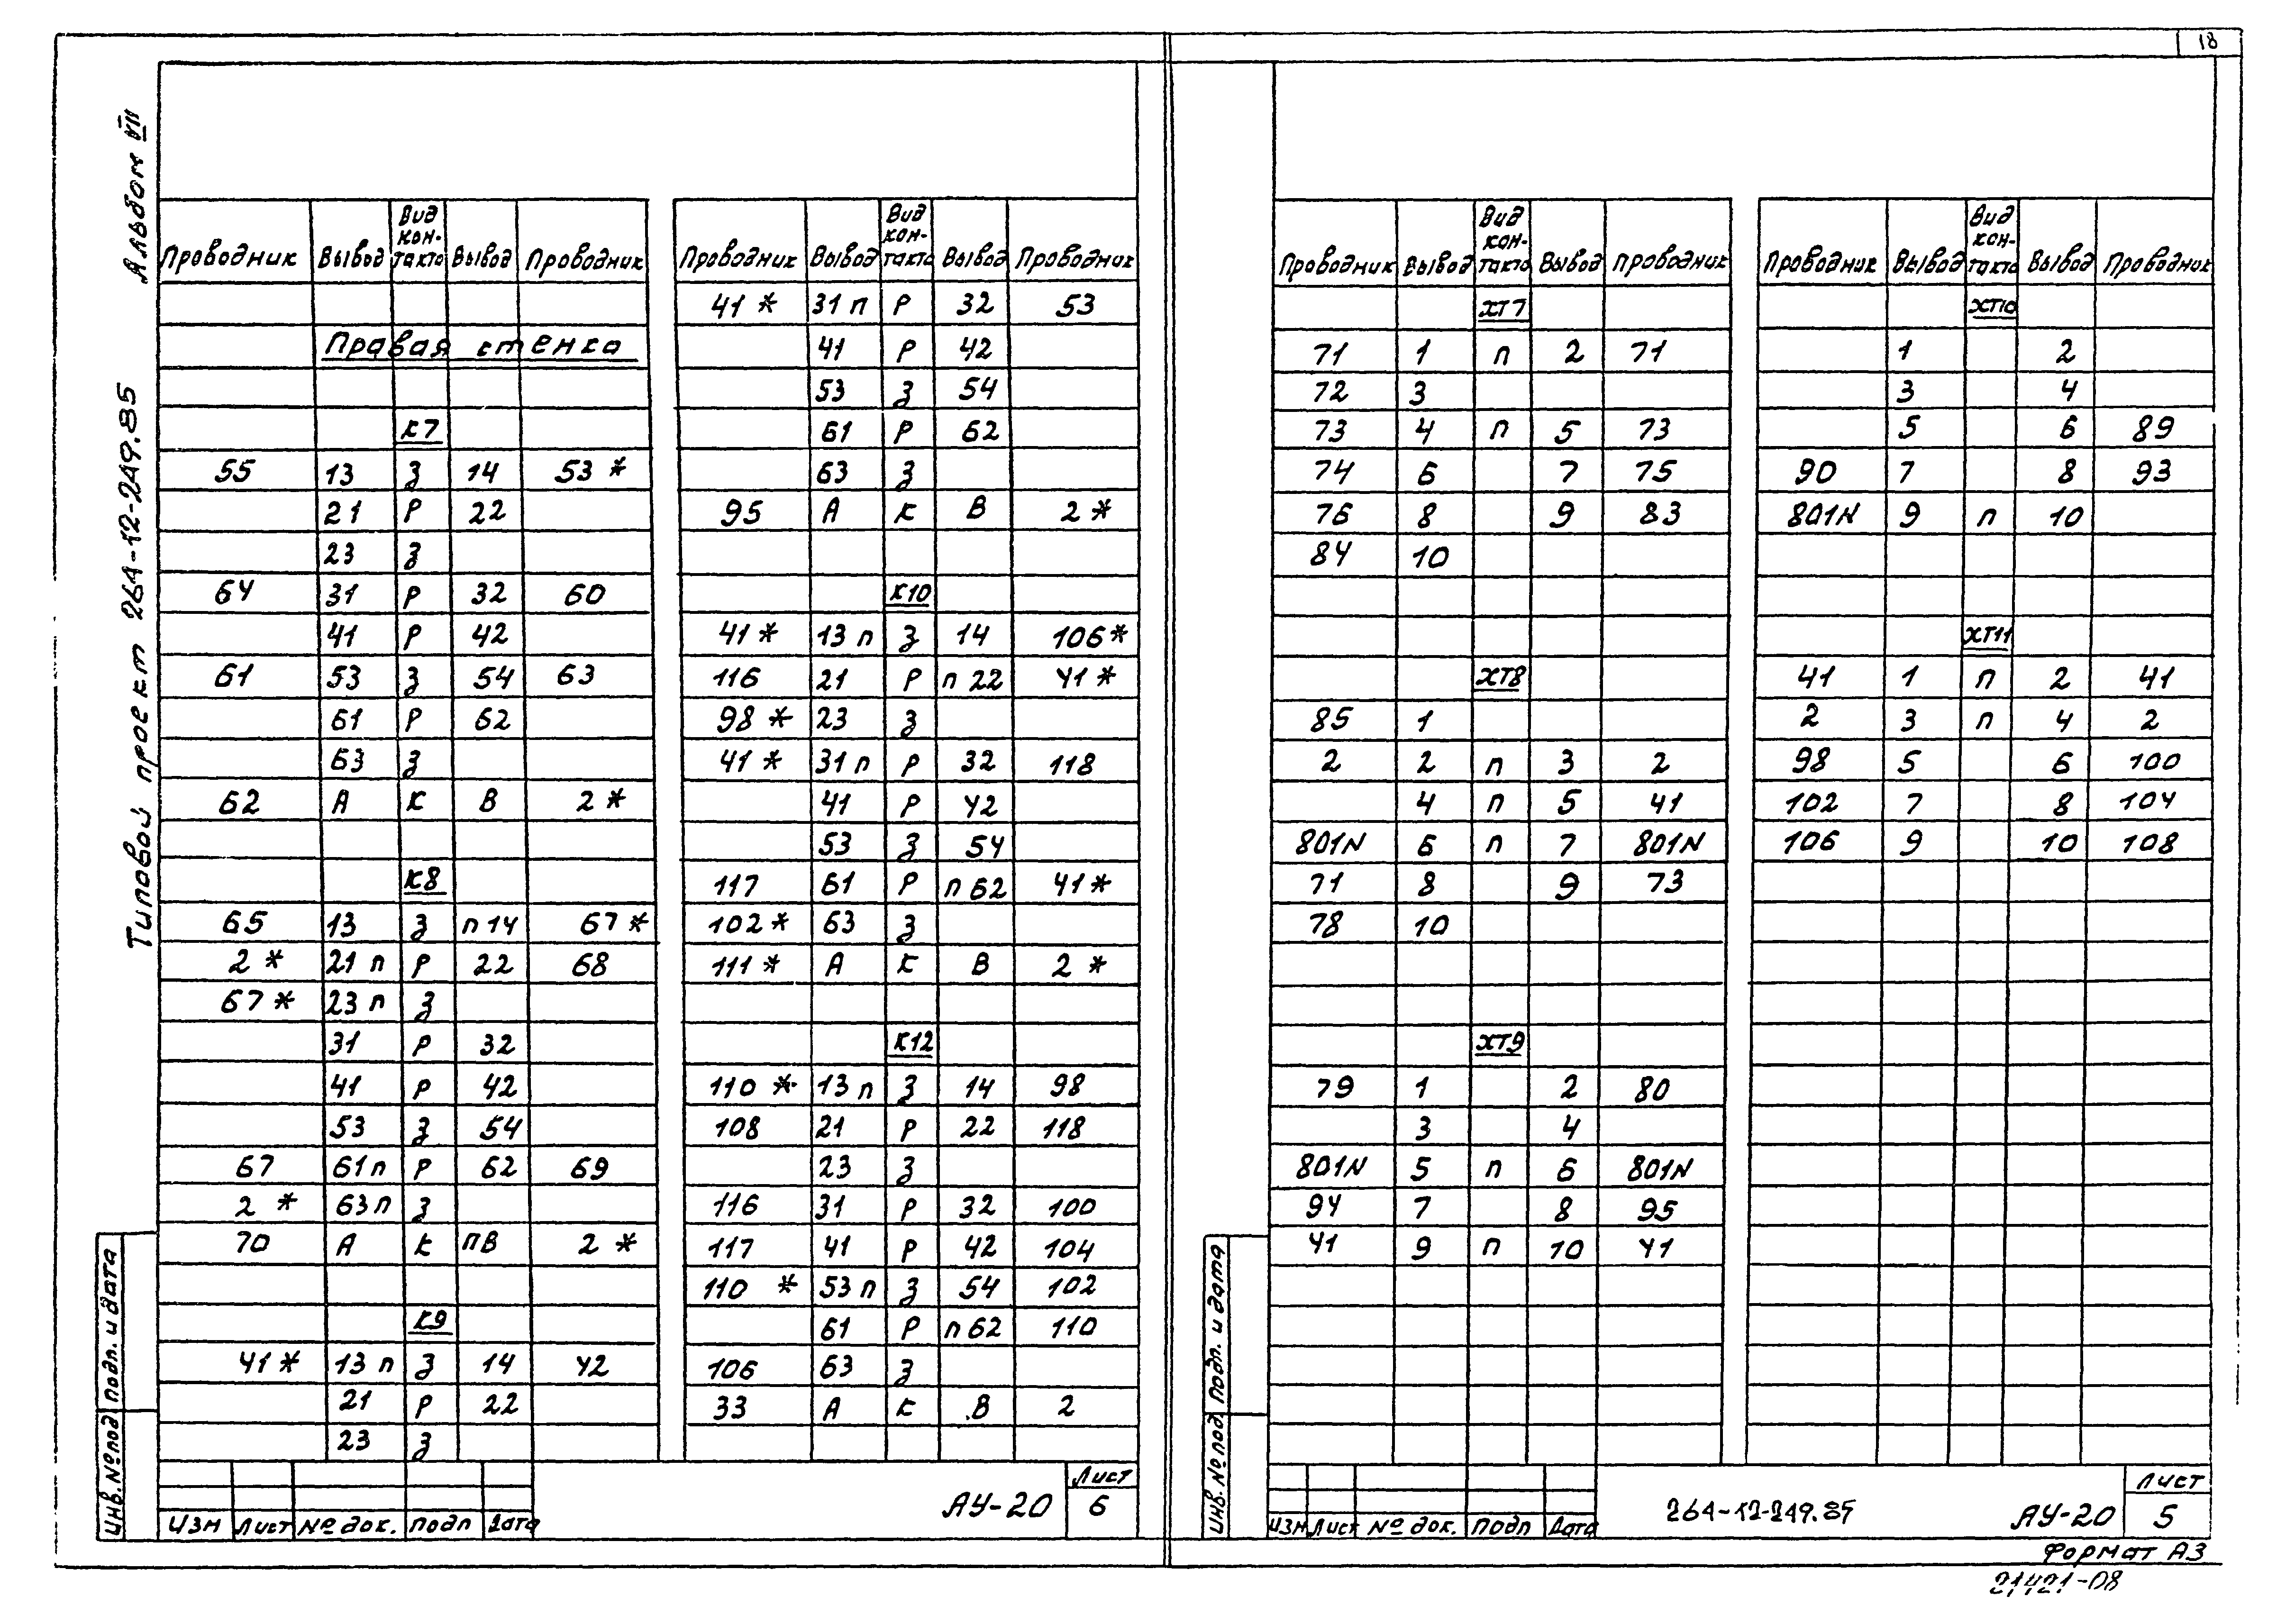 18
Альбом VII
Типовой проект 264-12-249.85
Проводник Вывод Вид контакта Вывод Проводник
Правая стенка
К7
55 13 З 14 53 *
21 Р 22
23 З
64 31 Р 32 60
41 Р 42
61 53 З 54 63
61 Р 62
63 З
62 А К В 2 *
К8
65 13 З п 14 67 *
2 * 21 п Р 22 68
67 * 23 п З
31 Р 32
41 Р 42
53 З 54
67 61 п Р 62 69
2 * 63 п З
70 А К пВ 2 *
К9
41 * 13 п З 14 42
21 Р 22
23 З
Проводник Вывод Вид контакта Вывод Проводник
41 * 31 п Р 32 53
41 Р 42
53 З 54
61 Р 62
63 З
95 А К В 2 *
К10
41 * 13 п З 14 106 *
116 21 Р п 22 41 *
98 * 23 З
41 * 31 п Р 32 118
41 Р 42
53 З 54
117 61 Р п 62 41 *
102 * 63 З
111 * А К В 2 *
К12
110 * 13 п З 14 98
108 21 Р 22 118
23 З
116 31 Р 32 100
117 41 Р 42 104
110 * 53 п З 54 102
61 Р п 62 110
106 63 З
33 А К В 2
Инв. № под Подп. и дата
Изм Лист № док. Подп Дата
АУ-20
Лист
6
Проводник Вывод Вид контакта Вывод Проводник
ХТ7
71 1 п 2 71
72 3
73 4 п 5 73
74 6 7 75
76 8 9 83
84 10
ХТ8
85 1
2 2 п 3 2
4 п 5 41
801N 6 п 7 801N
71 8 9 73
78 10
ХТ9
79 1 2 80
3 4
801N 5 п 6 801N
94 7 8 95
41 9 п 10 41
Проводник Вывод Вид контакта Вывод Проводник
ХТ10
1 2
3 4
5 6 89
90 7 8 93
801N 9 п 10
ХТ11
41 1 п 2 41
2 3 п 4 2
98 5 6 100
102 7 8 104
106 9 10 108
Инв. № под. Подп. и дата
Изм Лист № док. Подп Дата
264-12-249.85
АУ-20
Лист
5
Формат А3
21421-08